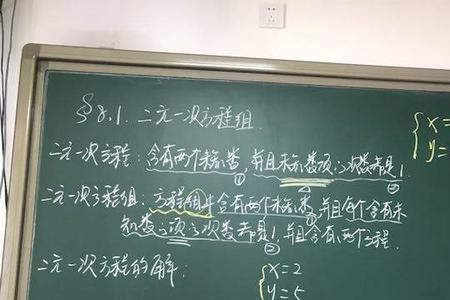 §8.1. 二元一次方程组
{x=
二元一次方程:含有两个未知数,并且未知数项的次数都是1.
y=
① ②
二元一次方程组:方程组中含有两个未知数,并且每个含有未
① ②
知数的项的次数都是1,并且含有两个方程.
③
二元一次方程的解:
{x=2
y=5